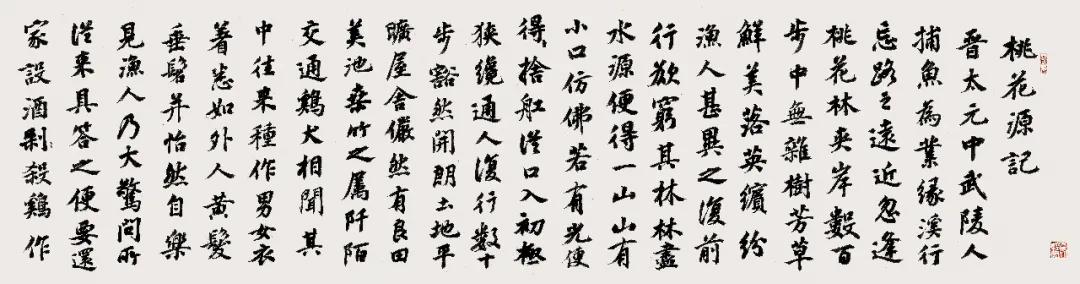 桃花源記
晉太元中武陵人
捕魚為業緣溪行
忘路之遠近忽逢
桃花林夾岸數百
步中無雜樹芳草
鮮美落英繽紛
漁人甚異之復前
行欲窮其林林盡
水源便得一山山有
小口仿佛若有光便
得捨舡從口入初極
狹纔通人復行數十
步豁然開朗土地平
曠屋舍儼然有良田
美池桑竹之屬阡陌
交通鷄犬相聞其
中往來種作男女衣
着悉如外人黃髮
垂髫并怡然自樂
見漁人乃大驚問所
從來具答之便要還
家設酒殺鷄作